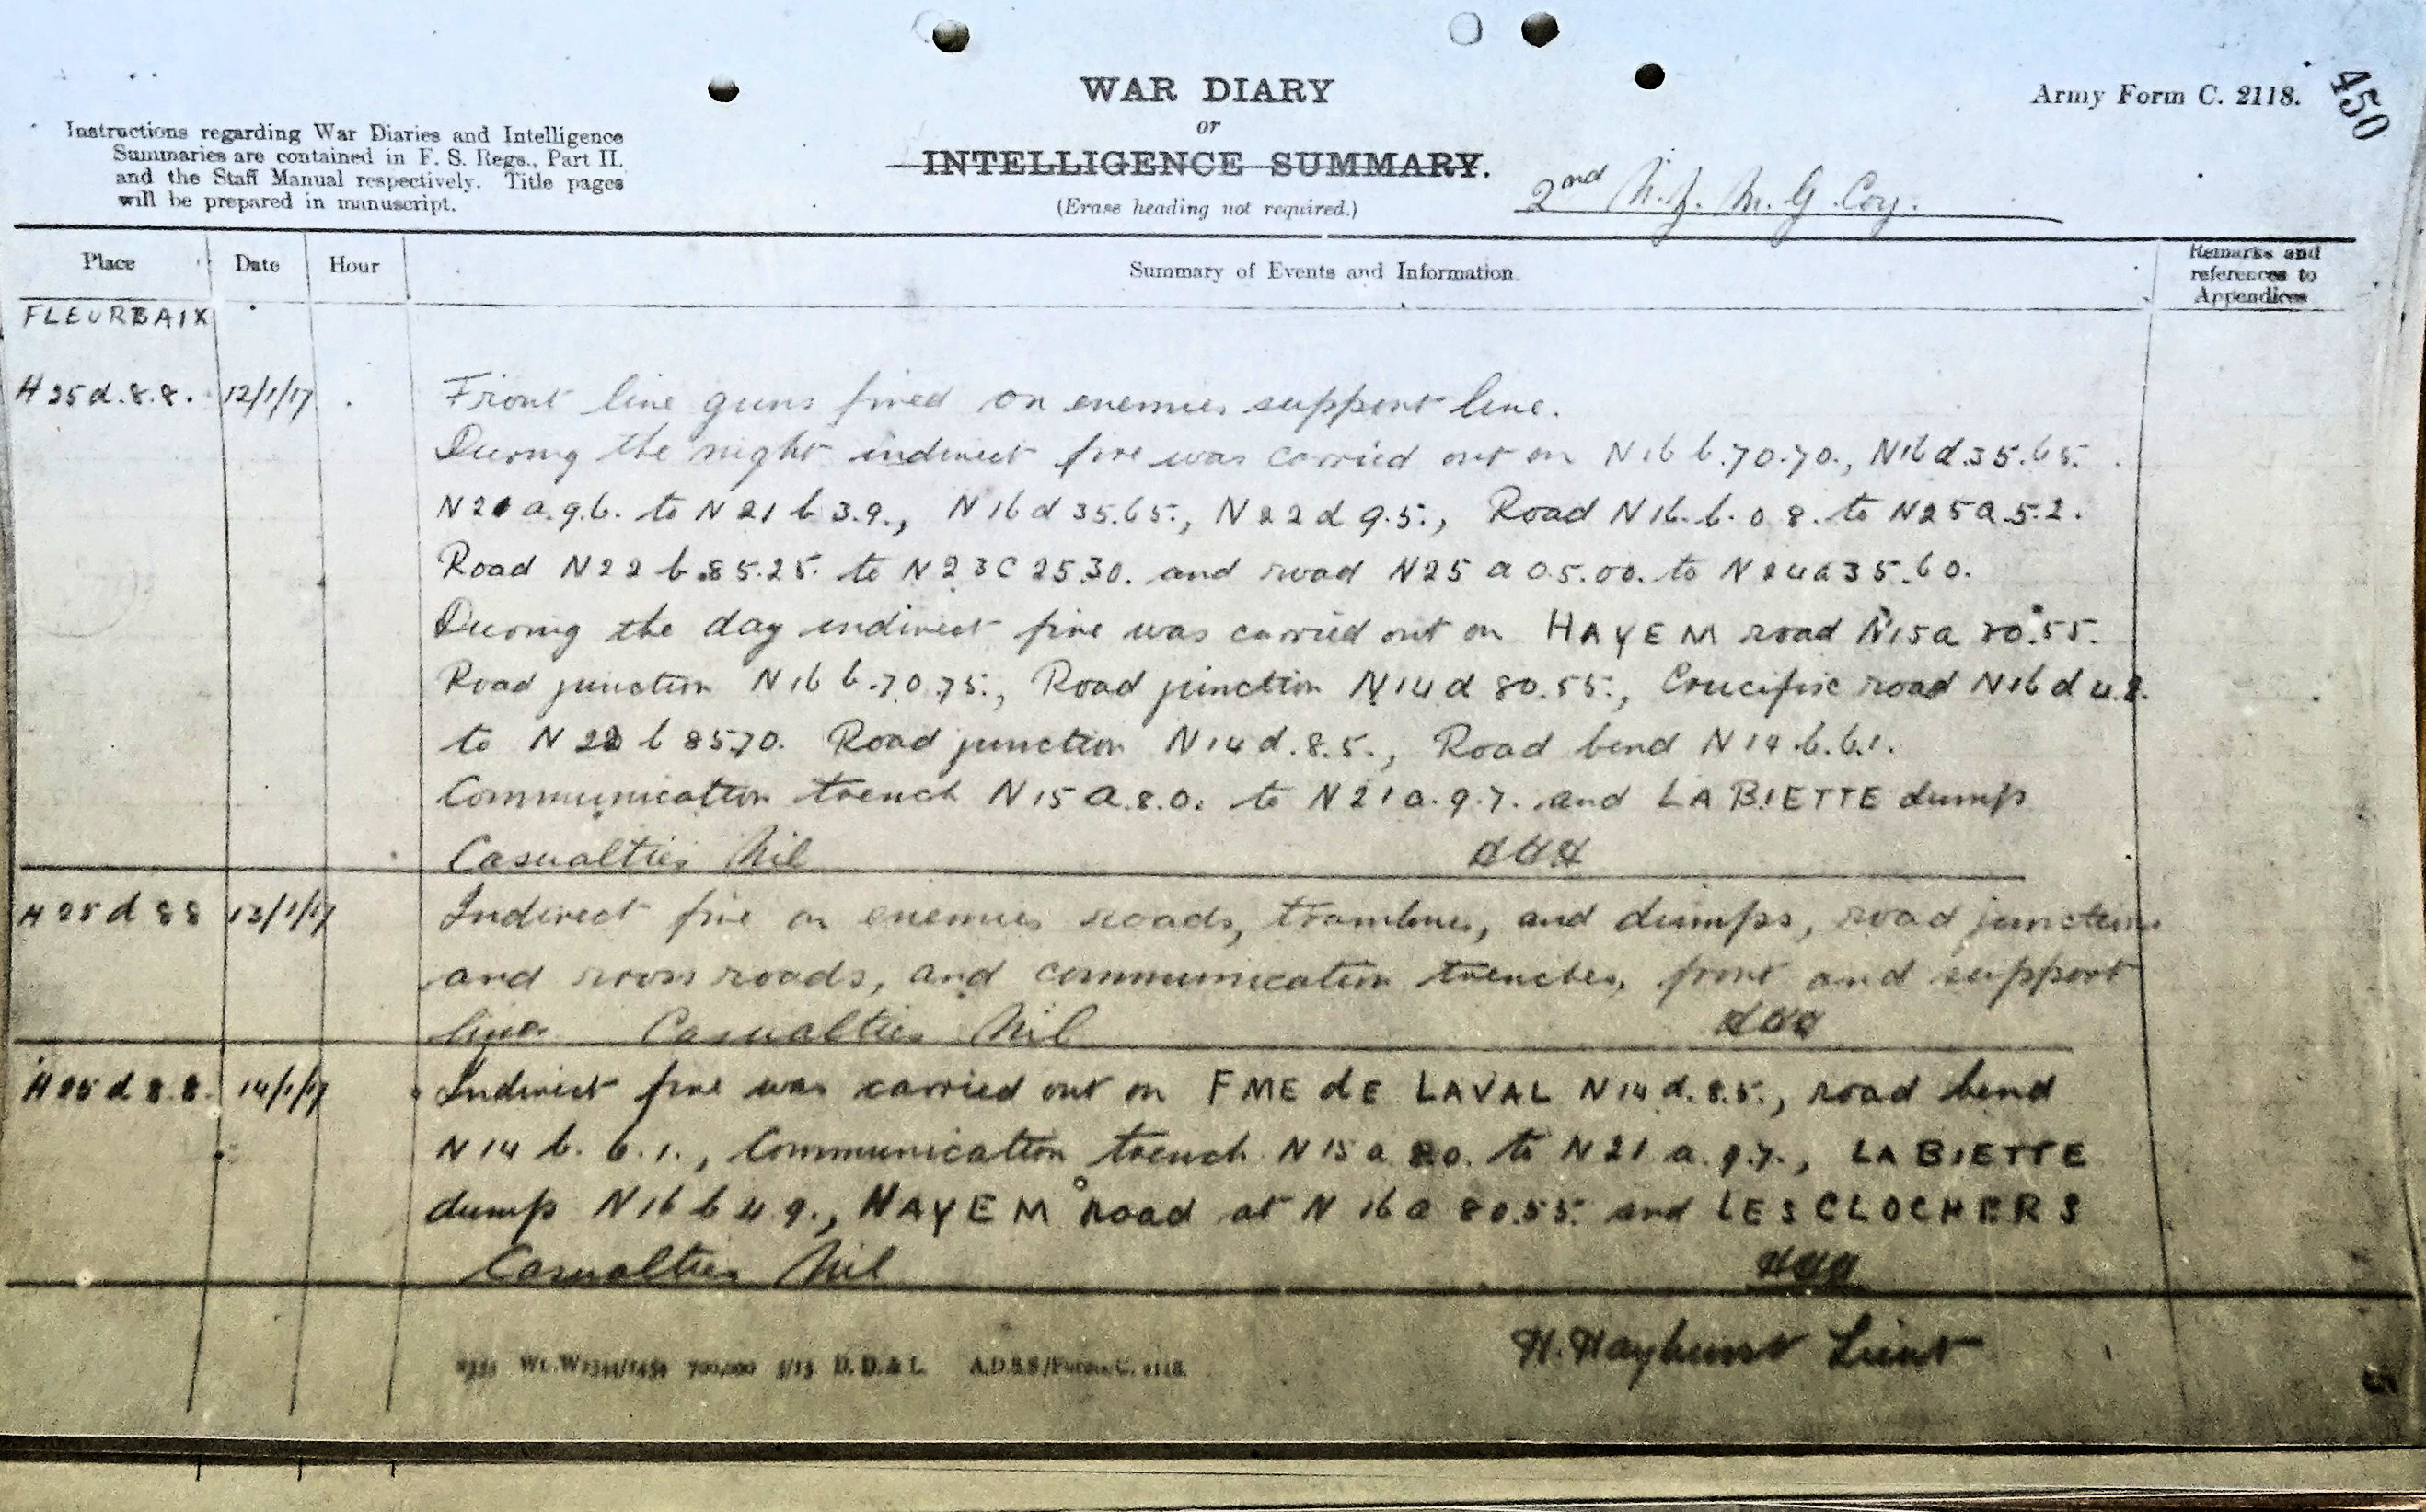 WAR DIARY
or
INTELLIGENCE SUMMARY.
(Erase heading not required.)
Army Form C. 2118.
450
Instructions regarding War Diaries and Intelligence
Summaries are contained in F. S. Regs., Part II.
and the Staff Manual respectively. Title pages
will be prepared in manuscript.
2nd N.Z. M. G. Coy.
Place Date Hour Summary of Events and Information Remarks and
references to
Appendices
FLEURBAIX
H 25 d. 8. 8. 12/1/17 Front line guns fired on enemies support line.
During the night indirect fire was carried out on N16 b. 70.70., N16 d. 35.65.
N21 a. 9.6. to N21 b 3.9., N16 d 35.65., N22 d 9.5., Road N16. b. 0 8. to N25 a 5.2.
Road N22 b 85.25. to N23 C 25.30. and road N25 a 05.00. to N24 a 35.60.
During the day indirect fire was carried out on HAYEM road N15a 80.55.
Road junction N16 b. 70.75., Road junction N14 d 80.55., Crucifix road N16 d 4.8.
to N22 b 8570. Road junction N14 d. 8.5., Road bend N14 b. 6.1.
Communication trench N15 a. 8.0. to N21 a. 9.7. and LA BIETTE dump
Casualties Nil
H 25 d 88 13/1/17 Indirect fire on enemies roads, tramlines, and dumps, road junctions
and cross roads, and communication trenches, front and support
lines. Casualties Nil
H 25 d 8.8. 14/1/17 Indirect fire was carried out on FME dE LAVAL N14 d. 8.5., road bend
N14 b. 6.1., Communication trench N15 a 80. to N21 a. 9.7., LA BIETTE
dump N16 b 4.9., HAYEM road at N 16 a 80.55. and LES CLOCHERS
Casualties Nil
H. Hayhurst Lieut
700,000 5/15 D. D. & L. A.D.S.S/Forms/C. 2118.